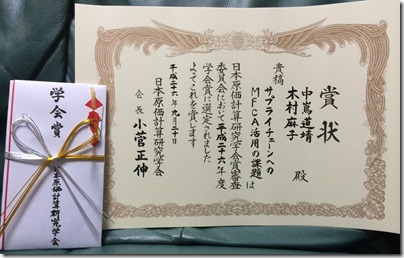 賞状
中嶌道靖
木村麻子
殿
貴稿
サプライチェーンへの
MFCA活用の課題は
日本原価計算研究学会賞審査
委員会において平成二十六年度
学会賞に選定されました
よってこれを賞します
平成二十六年九月二十日
日本原価計算研究学会
会長 小菅正伸
学会賞
日本原価計算研究学会